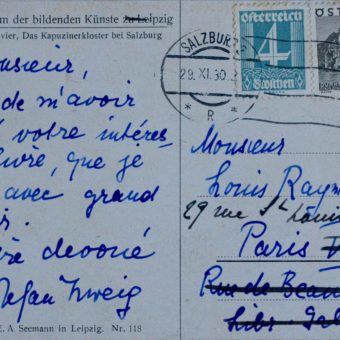 um der bildenden Künste zu Leipzig
vier, Das Kapuzinerkloster bei Salzburg
onsieur,
de m'avoir
votre intéres-
livre, que je
avec grand
r.
devoué
tefan Zweig
E. A Seemann in Leipzig. Nr. 118
SALZBURG 2
29. XI. 30.
* R *
Österreich
4
Groschen
ÖST
Monsieur
Louis Raym
29 rue St Louis
Paris
Rue de Beau
Libr. Gal